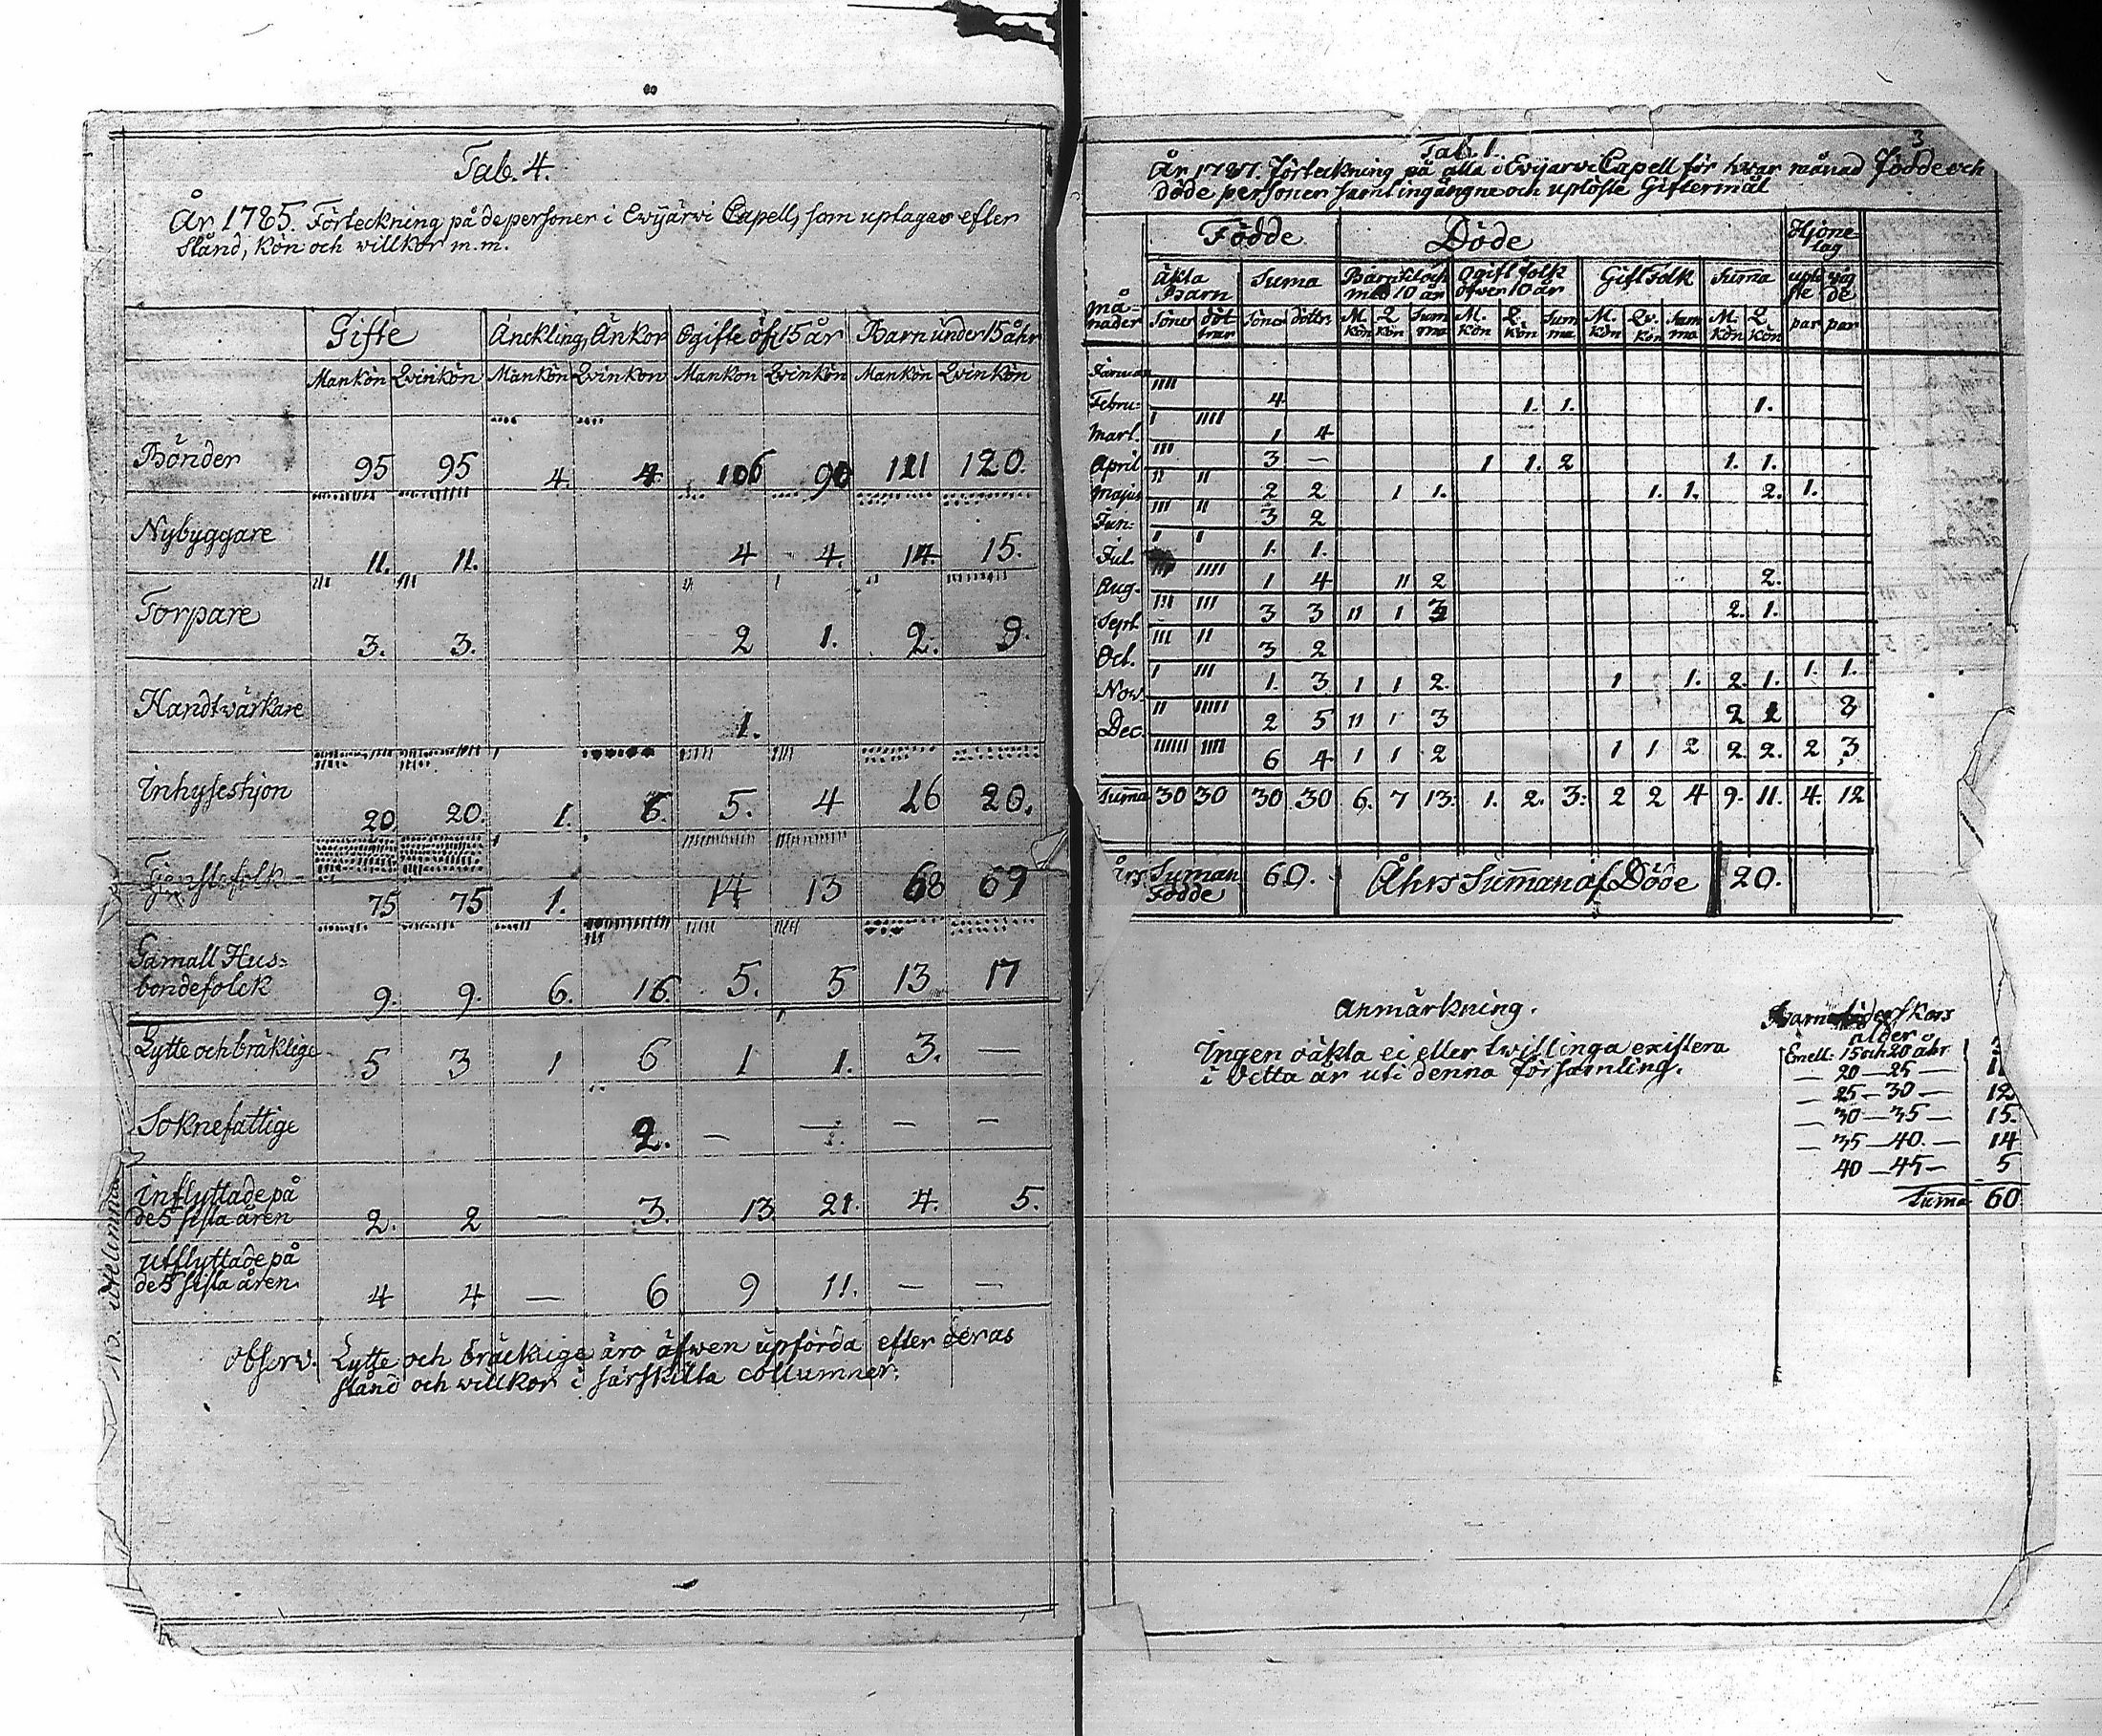 Tab. 4.
År 1785. Förteckning på de personer i Ewijärwi Capell, som uptagas efter
Stånd, Kön och willkor m.m.
Gifte Änckling, Änkor Ogifte öfr 15 år Barn under 15 åhr
Mankön Qvinkön Mankön Qvinkön Mankön Qvinkön Mankön Qvinkön
Bönder 95 95 4. 4. 106 90 111 120.
Nybyggare 11. 11. 4 4. 14. 15.
Torpare 3. 3. 2 1. 2. 9.
Handtvärkare 1.
Inhyseshjon 20 20. 1. 6. 5. 4 16 20.
Tjenstefolk 75 75 1. 14 13 68 69
Gamall Hus-
bondefolck 9. 9. 6. 16. 5. 5 13 17
Lytte och bräklige 5 3 1 6 1 1. 3. —
Soknefattige 2. — — — —
Inflyttade på
de 5 sista åren 2. 2 — 3. 13 21. 4. 5.
Utflyttade på
de 5 sista åren 4 4 — 6 9 11. — —
Observ. Lytte och bräcklige äro äfwen upförda efter deras
stånd och willkor i särskilta collumner.
3
Tab. 1.
År 1787. Förteckning på alla i Ewijarwi Capell för hwar månad Födde och
Döde personer samt ingångne och uplöste Giftermål
Födde Döde Hjone
lag
Äkta
Barn Suma Barn til och
med 10 år Ogift folk
öfver 10 år Gift folk Suma uplö
ste ing
de
Må-
nader Söner döt
trar Söner döttr: M.
Kön Q
Kön Sum
ma M.
Kön Q.
Kön Sum
ma M.
Kön Qv.
Kön Sum
ma M.
Kön Q.
Kön par par
Januar
IIII
Febru- 4 1. 1. 1.
I IIII
Mart. 1 4
III
April 3 — 1 1. 2 1. 1.
II II
Majus 2 2 1 1. 1. 1. 2. 1.
III II
Jun: 3 2
I I
Jul. 1. 1.
IIII
Aug- 1 4 II 2 2.
III III
Sept. 3 3 II 1 3 2. 1.
III II
Oct. 3 2
I III 1. 1.
Nov. 1. 3 1 1 2. 1 1. 2. 1.
II IIIII
Dec. 2 5 II 1 3 2 1 3
IIIIII IIII 6 4 1 1 2 1 1 2 2. 2. 2 3
Suma 30 30 30 30 6. 7 13. 1. 2. 3: 2 2 4 9. 11. 4. 12
Års Suman
Födde 60. Åhrs Suman af Döde 20.
Anmärkning.
Ingen oäkta ei eller twillinga existera
i detta år uti denna församling.
ålder
Emell: 15 och 20 åhr
— 20 — 25 —
— 25 — 30 — 12
— 30 — 35 — 15.
— 35 — 40. — 14
40 — 45 — 5
Suma 60